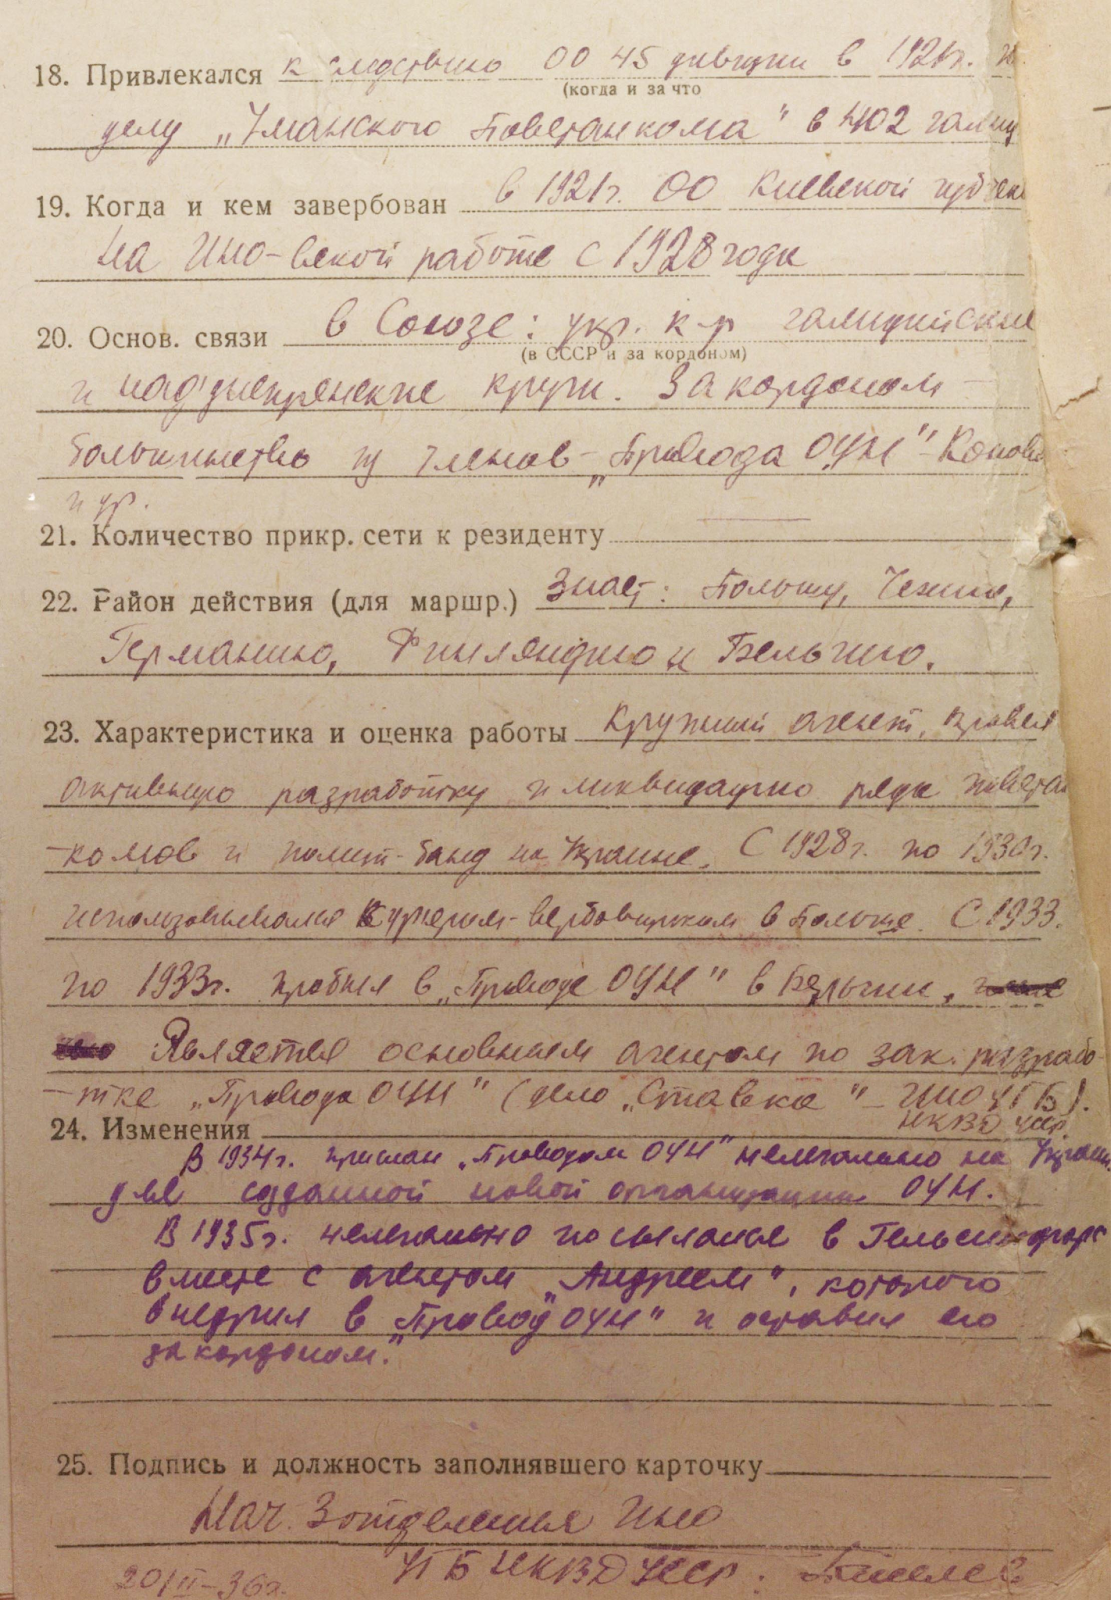 18. Привлекался к следствию ОО 45 дивизии в 1921г. по
(когда и за что
делу „Уманского Повстанкома" в 402 галиц
19. Когда и кем завербован в 1921г. ОО Киевской губчека
на Ино-вской работе с 1928 года
20. Основ. связи в Союзе: укр. к-р галицийские
(в СССР и за кордоном)
и над'днепрянские круги. За кордоном
большинство из членов „Провода ОУН" - Конова
и др.
21. Количество прикр. сети к резиденту
22. Район действия (для маршр.) Знает: Польшу, Чехию,
Германию, Финляндию и Бельгию.
23. Характеристика и оценка работы Крупный агент, провел
активную разработку и ликвидацию ряда повстан
-комов и полит-банд на Украине. С 1928г. по 1930г.
использовывался курьером-вербовщиком в Польше. С 1933.
по 1933г. пробыл в „Проводе ОУН" в Бельгии,
Является основным агентом по зак. разрабо-
-тке „Провода ОУН" (дело „Ставка" - ИНО УГБ).
НКВД УССР
24. Изменения
В 1934г. прислан „Проводом ОУН" нелегально на Украину
для созданной новой организации ОУН.
В 1935г. нелегально посылался в Гельсингфорс
вместе с агентом „Андреем", которого
внедрил в „Провод ОУН" и оставил его
за кордоном."
25. Подпись и должность заполнявшего карточку
Нач. 3 отделения Ино
УГБ НКВД УССР:
20/II-36г.